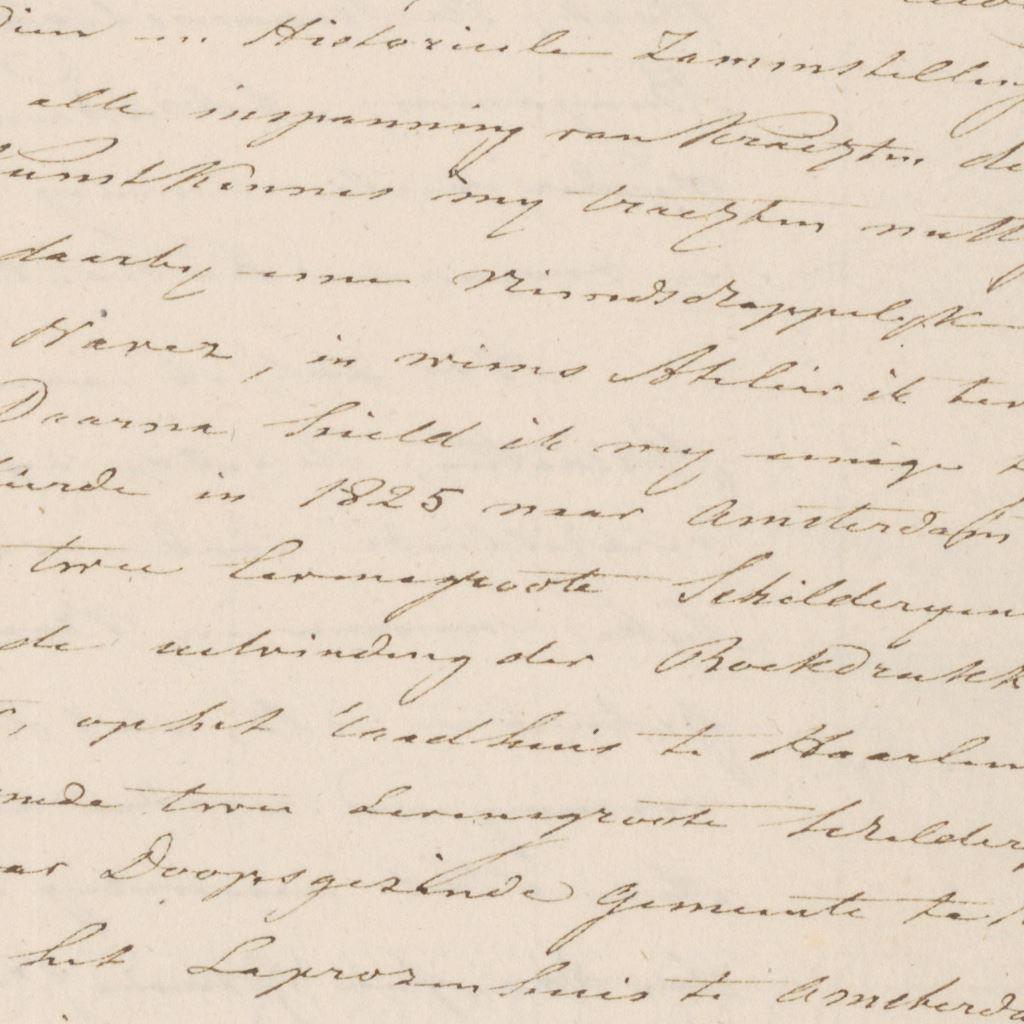 en Historiele Zammstelling
alle inspanning van Kragten de
kunstkennis my tragten nutt
daarby eene Vriendschappelyke
Navez, in wiens Atelier ik ter
Daarna hield ik my eenige
keerde in 1825 naar Amsterdam
twee Levensgroote Schilderyen
de uitvinding der Boekdrukk
op het Raadhuis te Haarlem
mede twee Levensgroote Schildery
Doopsgezinde Gemeente te
het Leprozenhuis te Amsterda